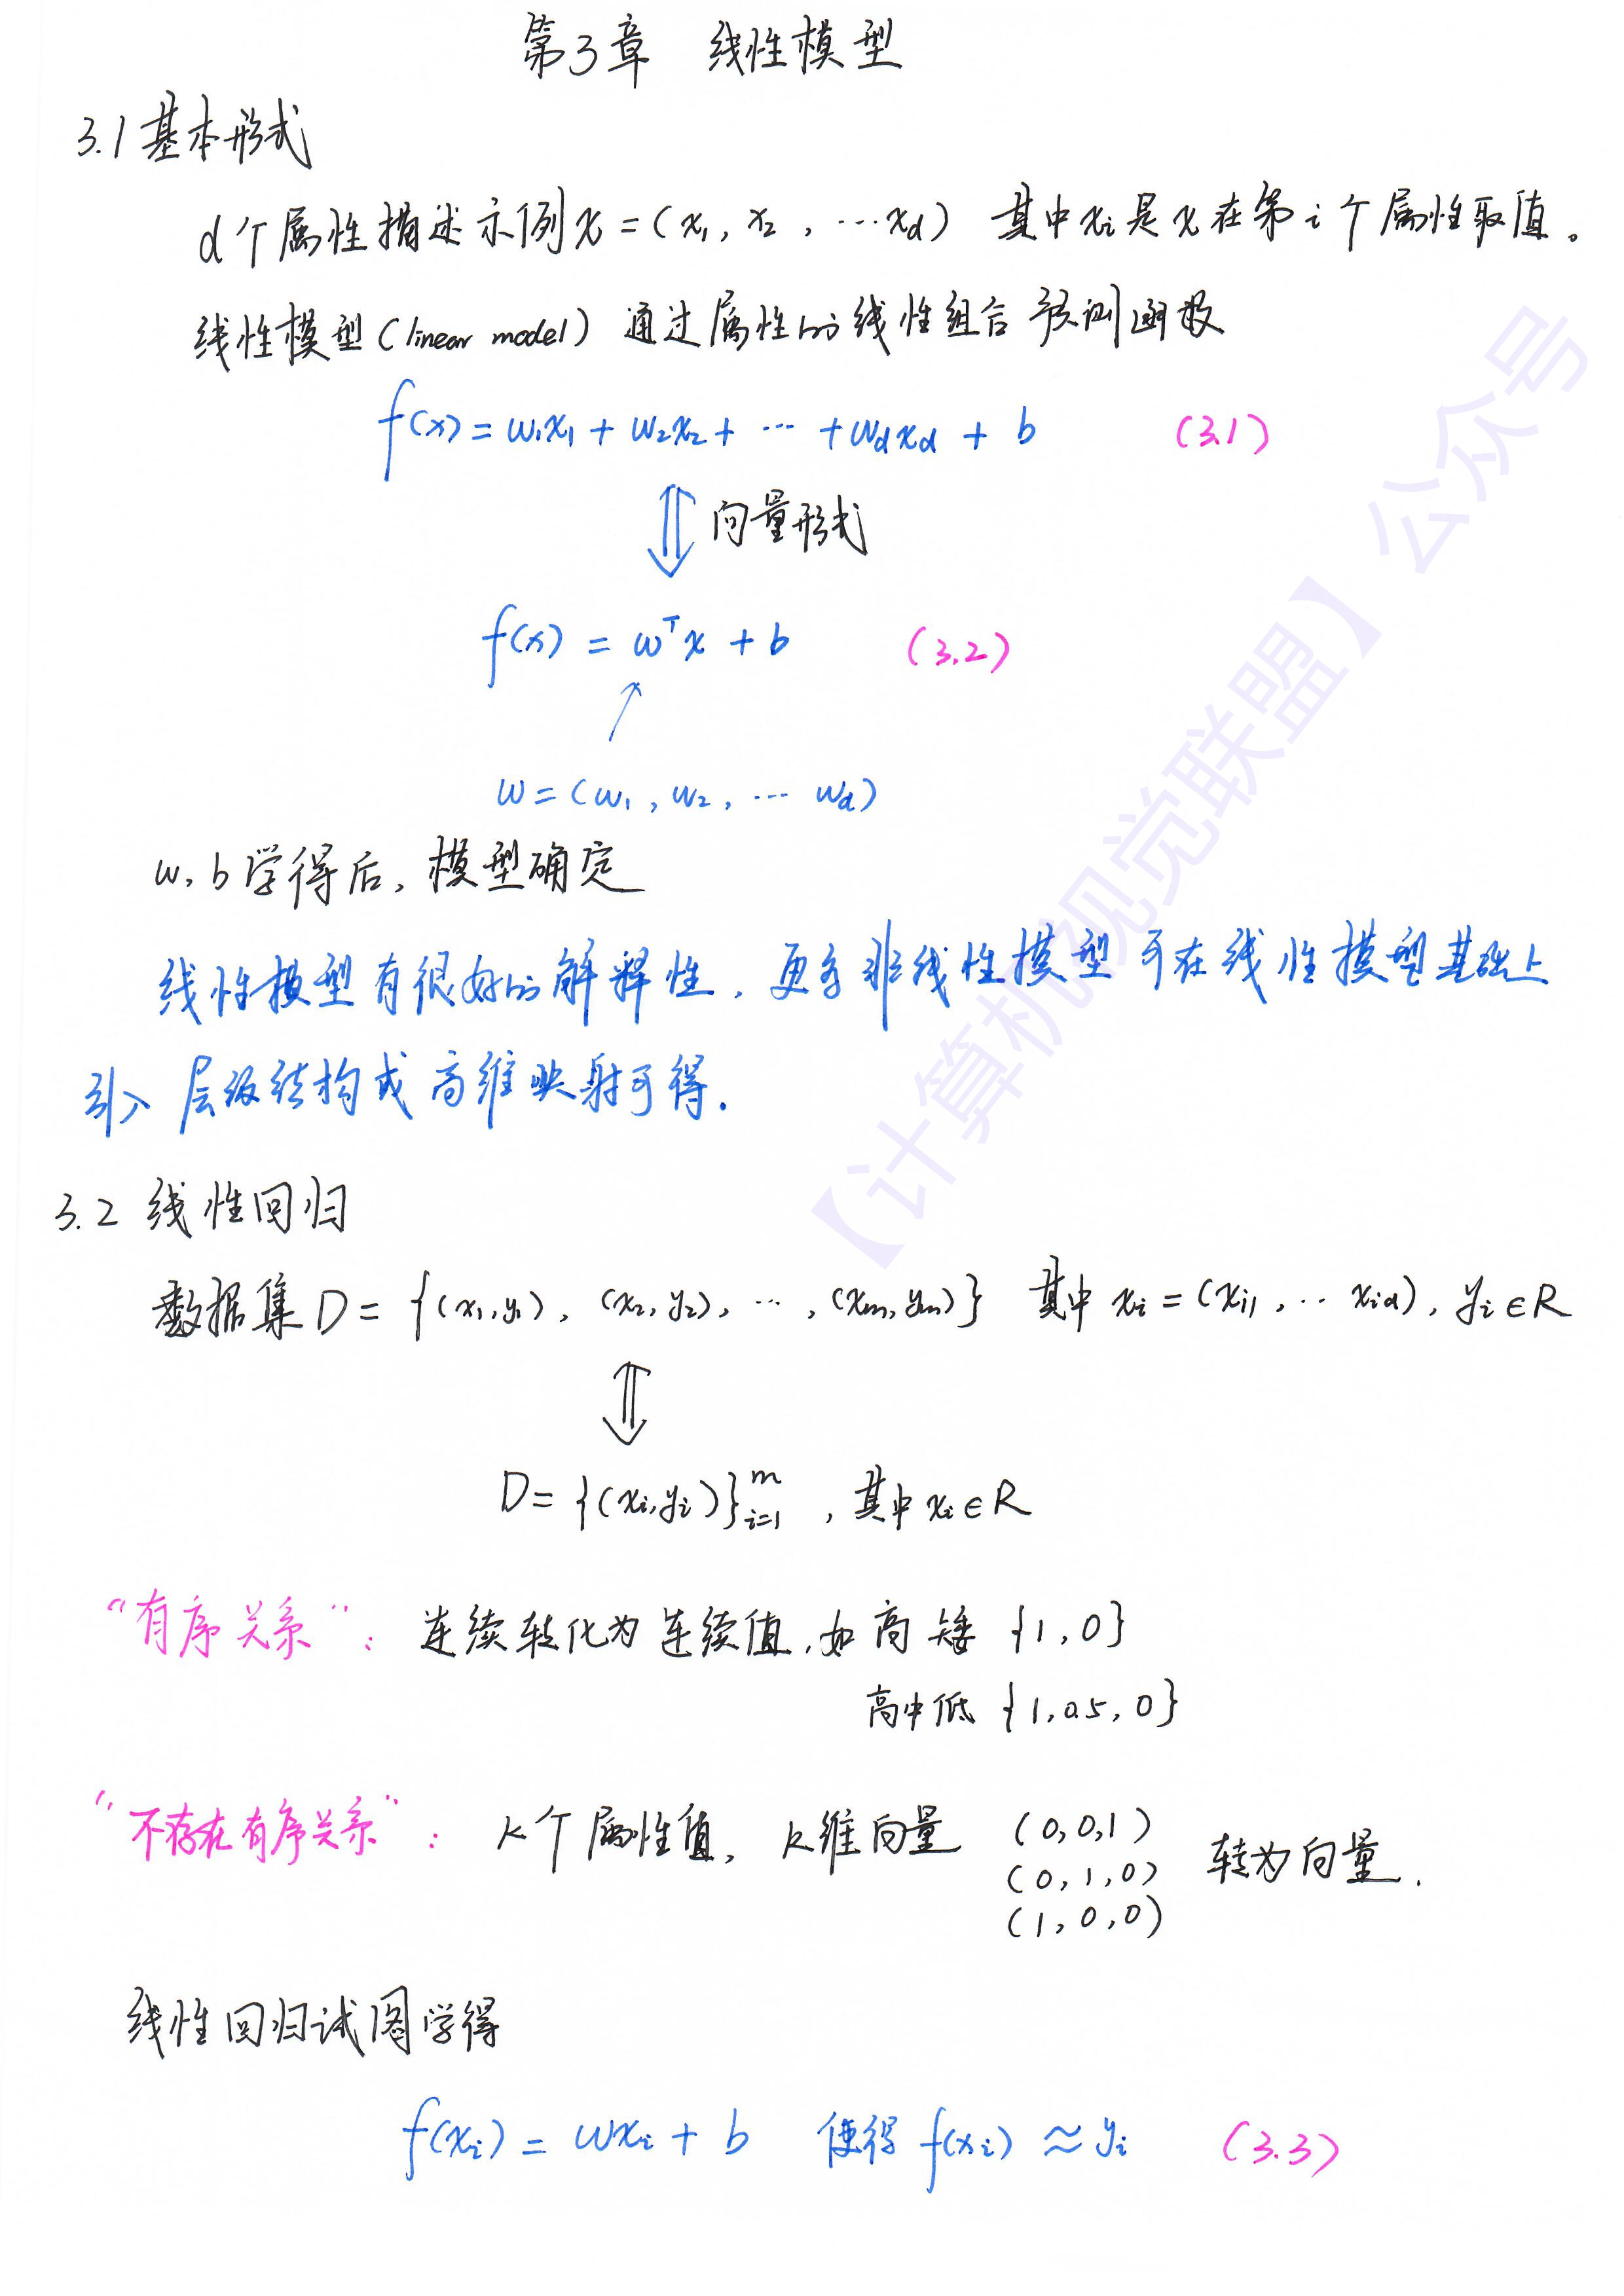 第3章 线性模型
3.1 基本形式
d个属性描述示例x=(x₁, x₂, ···x_d) 其中xᵢ是x在第i个属性取值。
线性模型(linear model) 通过属性的线性组合预测函数
f(x)=w₁x₁+w₂x₂+ ··· +w_dx_d + b (3.1)
⇕ 向量形式
f(x) = wᵀx + b (3.2)
w=(w₁, w₂, ··· w_d)
w, b学得后, 模型确定
线性模型有很好的解释性, 更多非线性模型可在线性模型基础上
引入 层级结构或高维映射可得.
3.2 线性回归
数据集D= {(x₁,y₁), (x₂,y₂), ···, (xₘ,yₘ)} 其中 xᵢ=(xᵢ₁, ·· x_id), yᵢ∈R
⇕
D= {(xᵢ,yᵢ)}ᵐᵢ₌₁ , 其中xᵢ∈R
“有序关系”: 连续转化为连续值, 如高矮 {1, 0}
高中低 {1, 0.5, 0}
“不存在有序关系”: k个属性值, k维向量 (0,0,1)
(0,1,0) 转为向量.
(1,0,0)
线性回归试图学得
f(xᵢ) = wxᵢ + b 使得 f(xᵢ) ≈ yᵢ (3.3)
【计算机视觉联盟】公众号